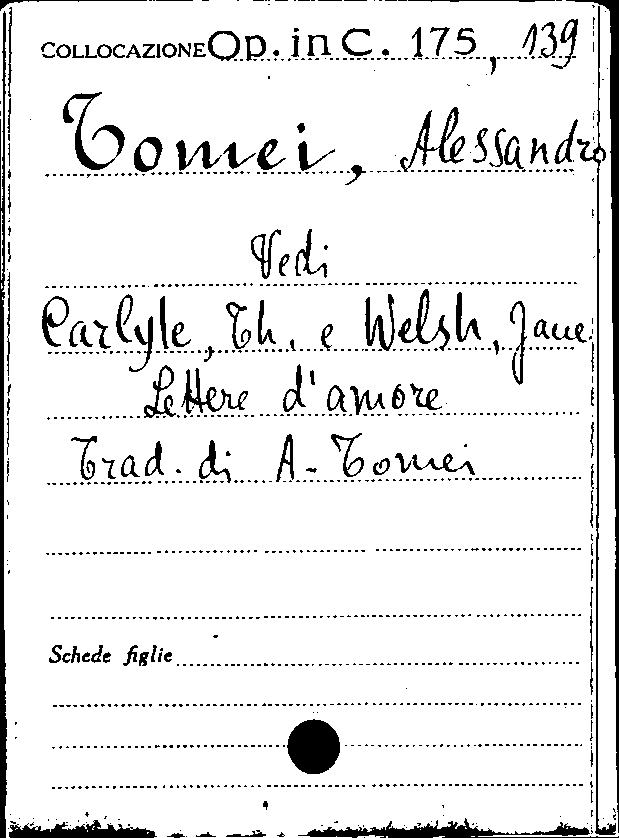 COLLOCAZIONE Op. in C. 175, 139
Tomei, Alessandro
Vedi
Carlyle, Th. e Welsh, Jane
Lettere d'amore
Trad. di A. Tomei
Schede figlie